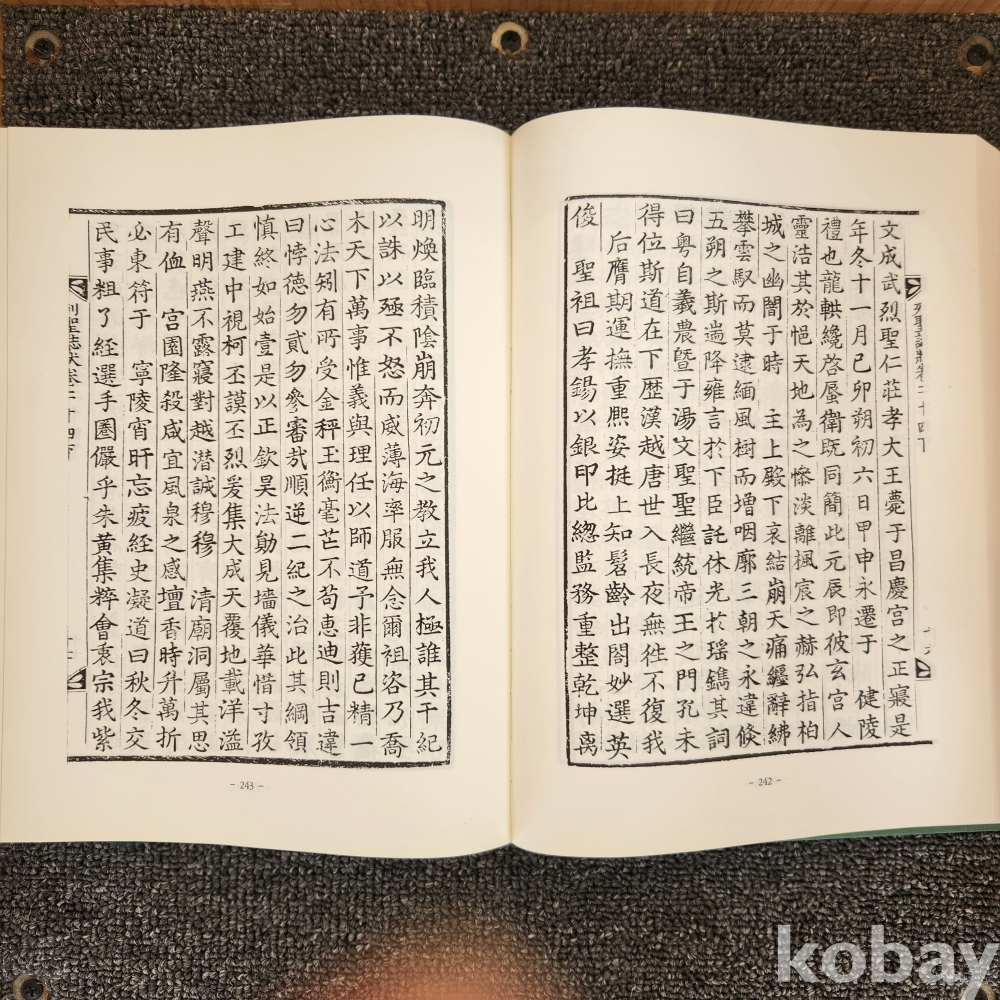 文成武烈聖仁莊孝大王薨于昌慶宮之正寢是
年冬十一月己卯朔初六日甲申永遷于 健陵
禮也龍輁纔啓蜃衛既同簡此元辰即彼玄宮人
靈浩其於悒天地為之慘淡離楓宸之赫弘指柏
城之幽闇于時 主上殿下哀結崩天痛纏辭紼
攀雲馭而莫逮緬風樹而增咽廓三朝之永違倏
五朔之斯遄降雍言於下臣託休光於瑤鐫其詞
曰粤自羲農暨于湯文聖聖繼統帝王之門孔未
得位斯道在下歷漢越唐世入長夜無往不復我
后膺期運撫重熙姿挺上知髫齡出閤妙選英
俊 聖祖曰孝錫以銀印比總監務重整乾坤离
列聖誌狀卷二十四下
- 242 -
明煥臨積陰崩奔初元之教立我人極誰其干紀
以誅以殛不怒而威薄海率服無念爾祖咨乃喬
木天下萬事惟義與理任以師道予非獲已精一
心法夠有所受金秤玉衡毫芒不苟惠迪則吉違
曰悖德勿貳勿參審哉順逆二紀之治此其綱領
慎終如始壹是以正欽昊法勛見墻儀華惜寸孜
工建中視柯丕謨丕烈爰集大成天覆地載洋溢
聲明燕不露寢對越潜誠穆穆 清廟洞屬其思
有侐 宮園隆殺咸宜風泉之感壇香時升萬折
必東符于 寧陵宵旰忘疲經史凝道曰秋冬交
民事粗了經選手圈儼乎朱黄集粹會衷宗我紫
列聖誌狀卷二十四下
- 243 -
kobay